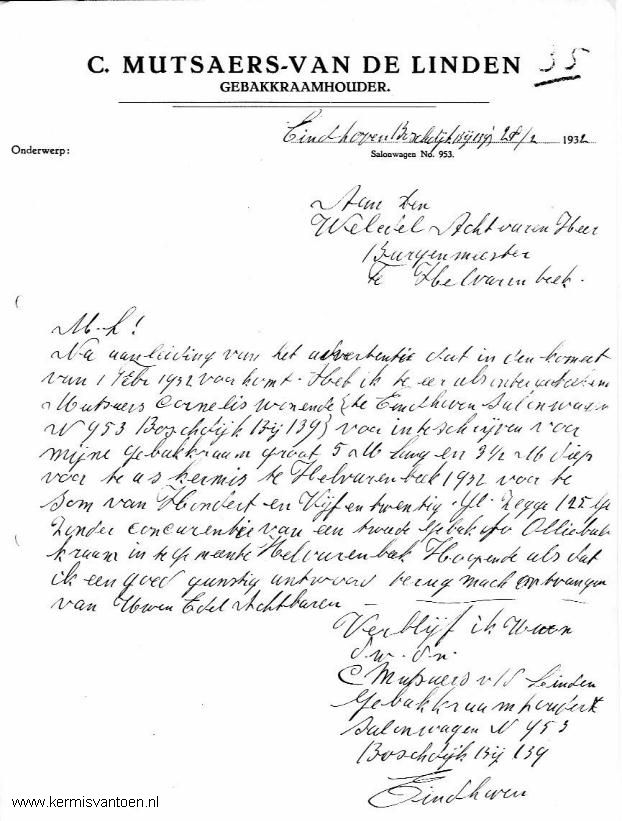 35
C. MUTSAERS-VAN DE LINDEN
GEBAKKRAAMHOUDER.
Eindhoven Boschdijk bij 139 28/2 1932
Onderwerp:
Salonwagen No. 953.
Aan den
Weledel Achtbaren Heer
Burgemeester
te Helvarenbeek.
M-h!
Na aanleiding van het advertentie dat in den komeet
van 1 Febr 1932 voor komt. Heb ik te eer als
Mutsaers Cornelis wonende (te Eindhoven Salonwagen
N 953 Boschdijk Bij 139) voor inteschrijven voor
mijne gebakkraam groot 5 M lang en 3½ M diep
voor te as kermis te Helvarenbeek 1932 voor te
som van Hondert en Vijf en twentig Gl. Zegge 125 Gl
Zonder concurentie van een tweede gebak of Olliebak
kraam in te gemeente Helvarenbeek Hoopende als dat
ik een goed gunstig antwoord terug mach ontvangen
van Uwen Edel Achtbaren
Verblijf ik Uwen
d.w.dn.
C Mutsaers v/d Linden
Gebakkraamhouder
Salonwagen N 953
Boschdijk Bij 139
Eindhoven
www.kermisvantoen.nl